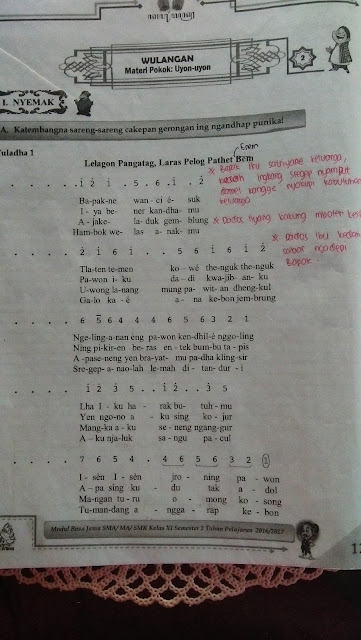 WULANGAN
Materi Pokok: Uyon-uyon
2
I. NYEMAK
A. Katembangna sareng-sareng cakepan gerongan ing ngandhap punika!
Tuladha 1
Enem
Lelagon Pangatag, Laras Pelog Pathet Bem
* Bapak Ibu
keluarga,
. . . . . 1 2 1 . 5 . 6 . 1 . 2
Ba-pak-ne wan - ci é- suk
I - ya be- ner kan-dha- mu
A - jake- la-duk gem- blung
Ham-bok we- las a - nak- mu
kangge nyukupi kabutuhan
keluarga
* Dados tiyang
* Dados Ibu kedah
sabar ngadepi
Bapak
. . . . 2 1 6 1 . . 5 6 1 6 1 2
Tla-ten te-men ko - wé the-nguk the-nguk
Pa-won i- ku da - di kwa-jib- an- ku
U-wong la-nang mung pa- wit- an dheng-kul
Ga-lo ka - é a - na ke-bon jem-brung
. . . . 6 5 6 4 4 4 6 5 6 3 2 1
Nge-ling-a-nan eng pa-won ken-dhil-é nggo-ling
Ning pi-kir-en be-ras en - tek bum-bu ta - pis
A -pase-neng yen bra-yat- mu pa-dha kling-sir
Sre-gep- a- nao-lah le-mah di - tan- dur - i
. . . . 1 2 3 5 . . 1 2 . . 3 5
Lha I - ku ha - rak bu- tuh - mu
Yen ngo-no a - ku sing ko - jur
Mang-ka a - ku se - neng ngang-gur
A – ku nja-luk sa - ngu pa - cul
. . . . 7 6 5 4 . 4 6 5 6 3 2 1
I - sèn I - sèn jro - ning pa - won
A - pa sing ku - du tak a - dol
Ma-ngan tu - ru o - mong ko - song
Tu-man-dang a - ngga - rap ke - bon
Modul Basa Jawa SMA/ MA/ SMK Kelas XI Semester 2 Tahun Pelajaran 2016/2017